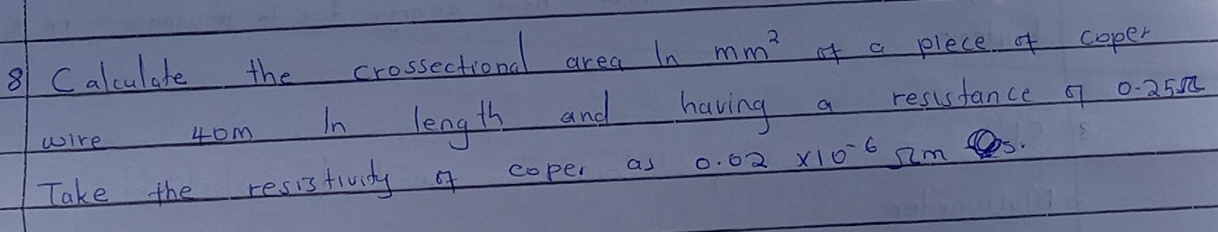 8 Calculate the crossectional area In mm² of a piece of coper
wire 40m In length and having a resistance of 0.25Ω
Take the resistivity of coper as 0.02 x10⁻⁶ Ωm